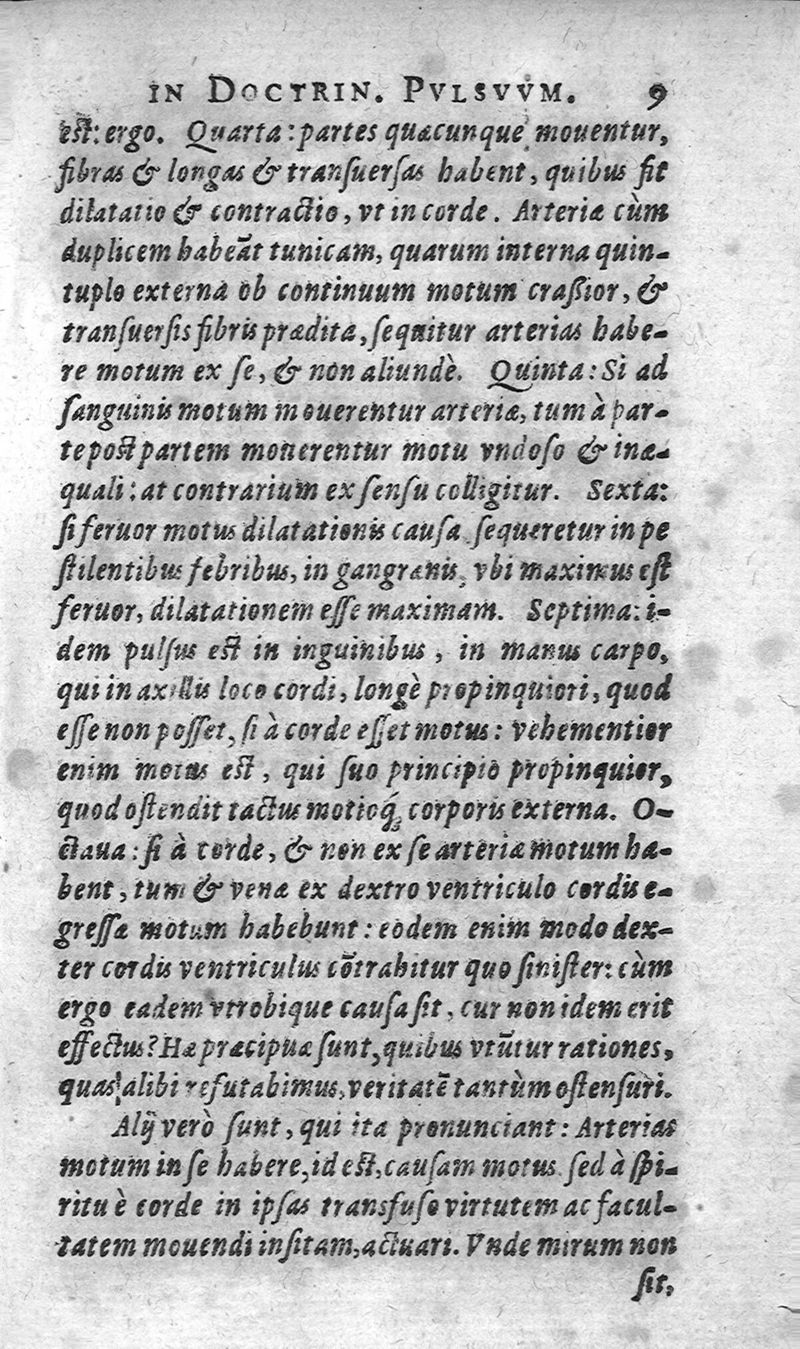 IN DOCTRIN. PVLSVVM. 9
est: ergo. Quarta: partes quacunque mouentur,
fibras & longas & transuersas habent, quibus fit
dilatatio & contractio, vt in corde. Arteriæ cùm
duplicem habeāt tunicam, quarum interna quin-
tuplo externa ob continuum motum crassior, &
transuersis fibris prædita, sequitur arterias habe-
re motum ex se, & non aliundè. Quinta: Si ad
sanguinis motum mouerentur arteriæ, tum à par-
te post partem mouerentur motu vndoso & inæ-
quali: at contrarium ex sensu colligitur. Sexta:
si feruor motus dilatationis causa sequeretur in pe
stilentibus febribus, in gangrænis, vbi maximus est
feruor, dilatationem esse maximam. Septima: i-
dem pulsus est in inguinibus, in manus carpo,
qui in axillis loco cordi, longè propinquiori, quod
esse non posset, si à corde esset motus: vehementior
enim motus est, qui suo principio propinquior,
quod ostendit tactus motioq́; corporis externa. O-
ctaua: si à corde, & non ex se arteriæ motum ha-
bent, tum & venæ ex dextro ventriculo cordis e-
gressæ motum habebunt: eodem enim modo dex-
ter cordis ventriculus cōtrahitur quo sinister: cùm
ergo eadem vtrobique causa sit, cur non idem erit
effectus? Hæ præcipuæ sunt, quibus vtūtur rationes,
quas alibi refutabimus, veritatē tantùm ostensuri.
Alij verò sunt, qui ita pronunciant: Arterias
motum in se habere, id est, causam motus sed à spi-
ritu è corde in ipsas transfuso virtutem ac facul-
tatem mouendi insitam, actuari. Vnde mirum non
sit,